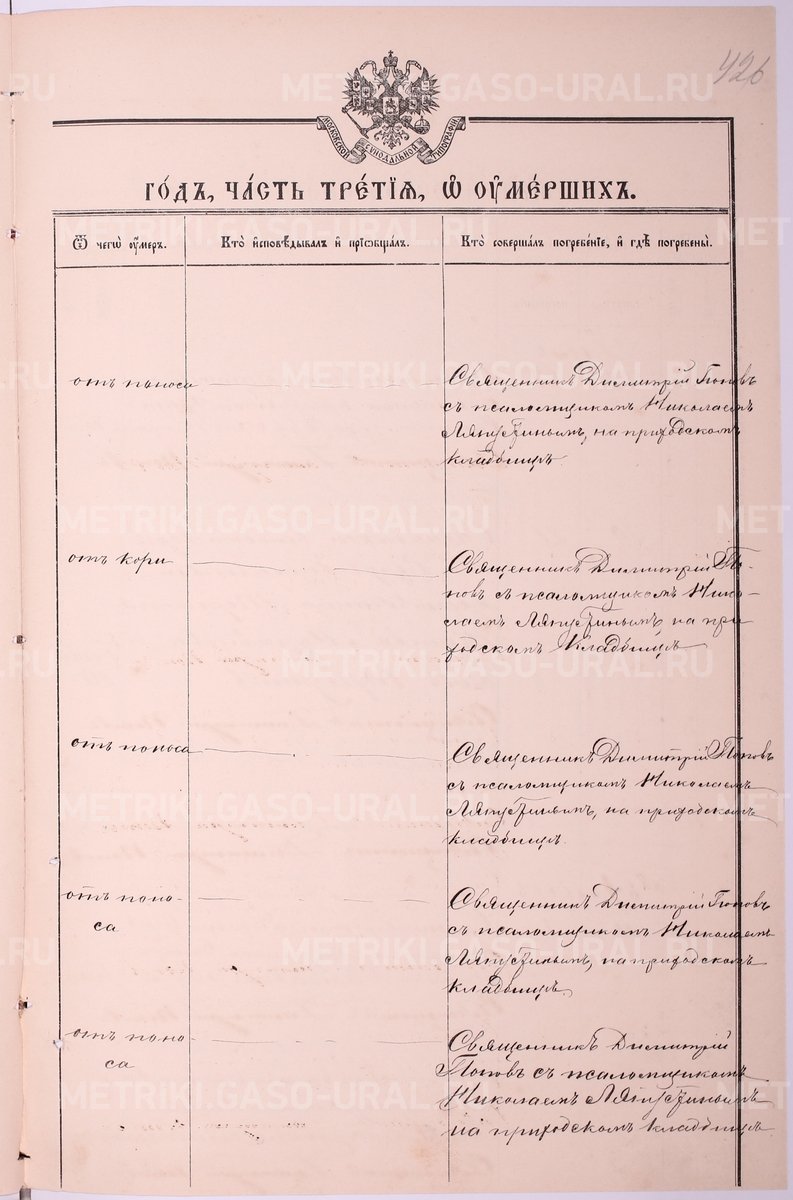 426
МОСКОВСКОЙ СѴНОДАЛЬНОЙ ТИПОГРАФІИ
ГО́ДЪ, ЧА́СТЬ ТРЕ́ТІЯ, Ѽ ОУ҆МЕ́РШИХЪ.
Ѿ чегѡ̀ оу҆́меръ.
Кто̀ и҆сповѣ́дывалъ и҆ прїѡбща́лъ.
Кто̀ соверша́лъ погребе́нїе, и҆ гдѣ̀ погребены̀.
отъ поноса
Священникъ Димитрій Поповъ
съ псаломщикомъ Николаемъ
Ляпустинымъ, на приходскомъ
кладбищѣ.
отъ кори
Священникъ Димитрій По-
повъ съ псаломщикомъ Нико-
лаемъ Ляпустинымъ, на при
ходскомъ кладбищѣ
отъ поноса
Священникъ Димитрій Поповъ
съ псаломщикомъ Николаемъ
Ляпустинымъ, на приходскомъ
кладбищѣ.
отъ поно-
са
Священникъ Димитрій Поповъ
съ псаломщикомъ Николаемъ
Ляпустинымъ, на приходскомъ
кладбищѣ.
отъ поно-
са
Священникъ Димитрій
Поповъ съ псаломщикомъ
Николаемъ Ляпустинымъ
на приходскомъ кладбищѣ
METRIKI.GASO-URAL.RU